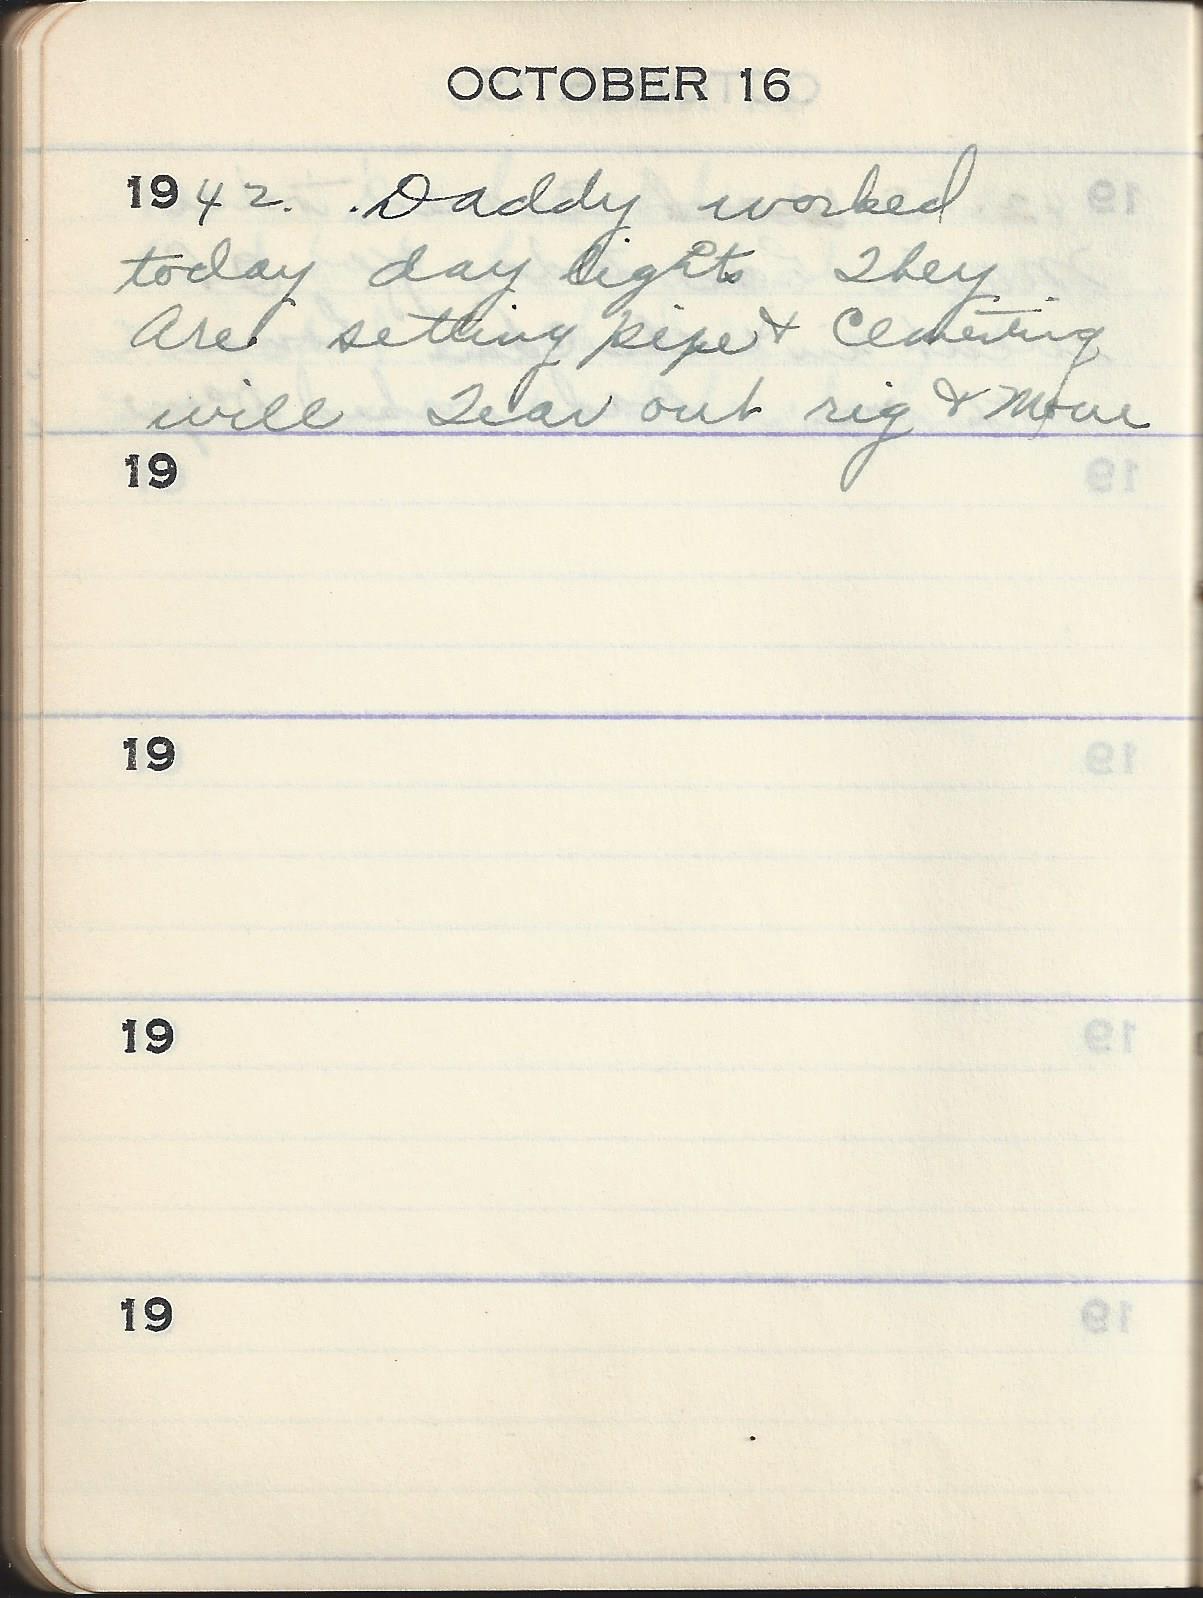 OCTOBER 16
1942. Daddy worked
today day lights They
Are setting pipe & Cementing
will Tear out rig & Move
19
19
19
19